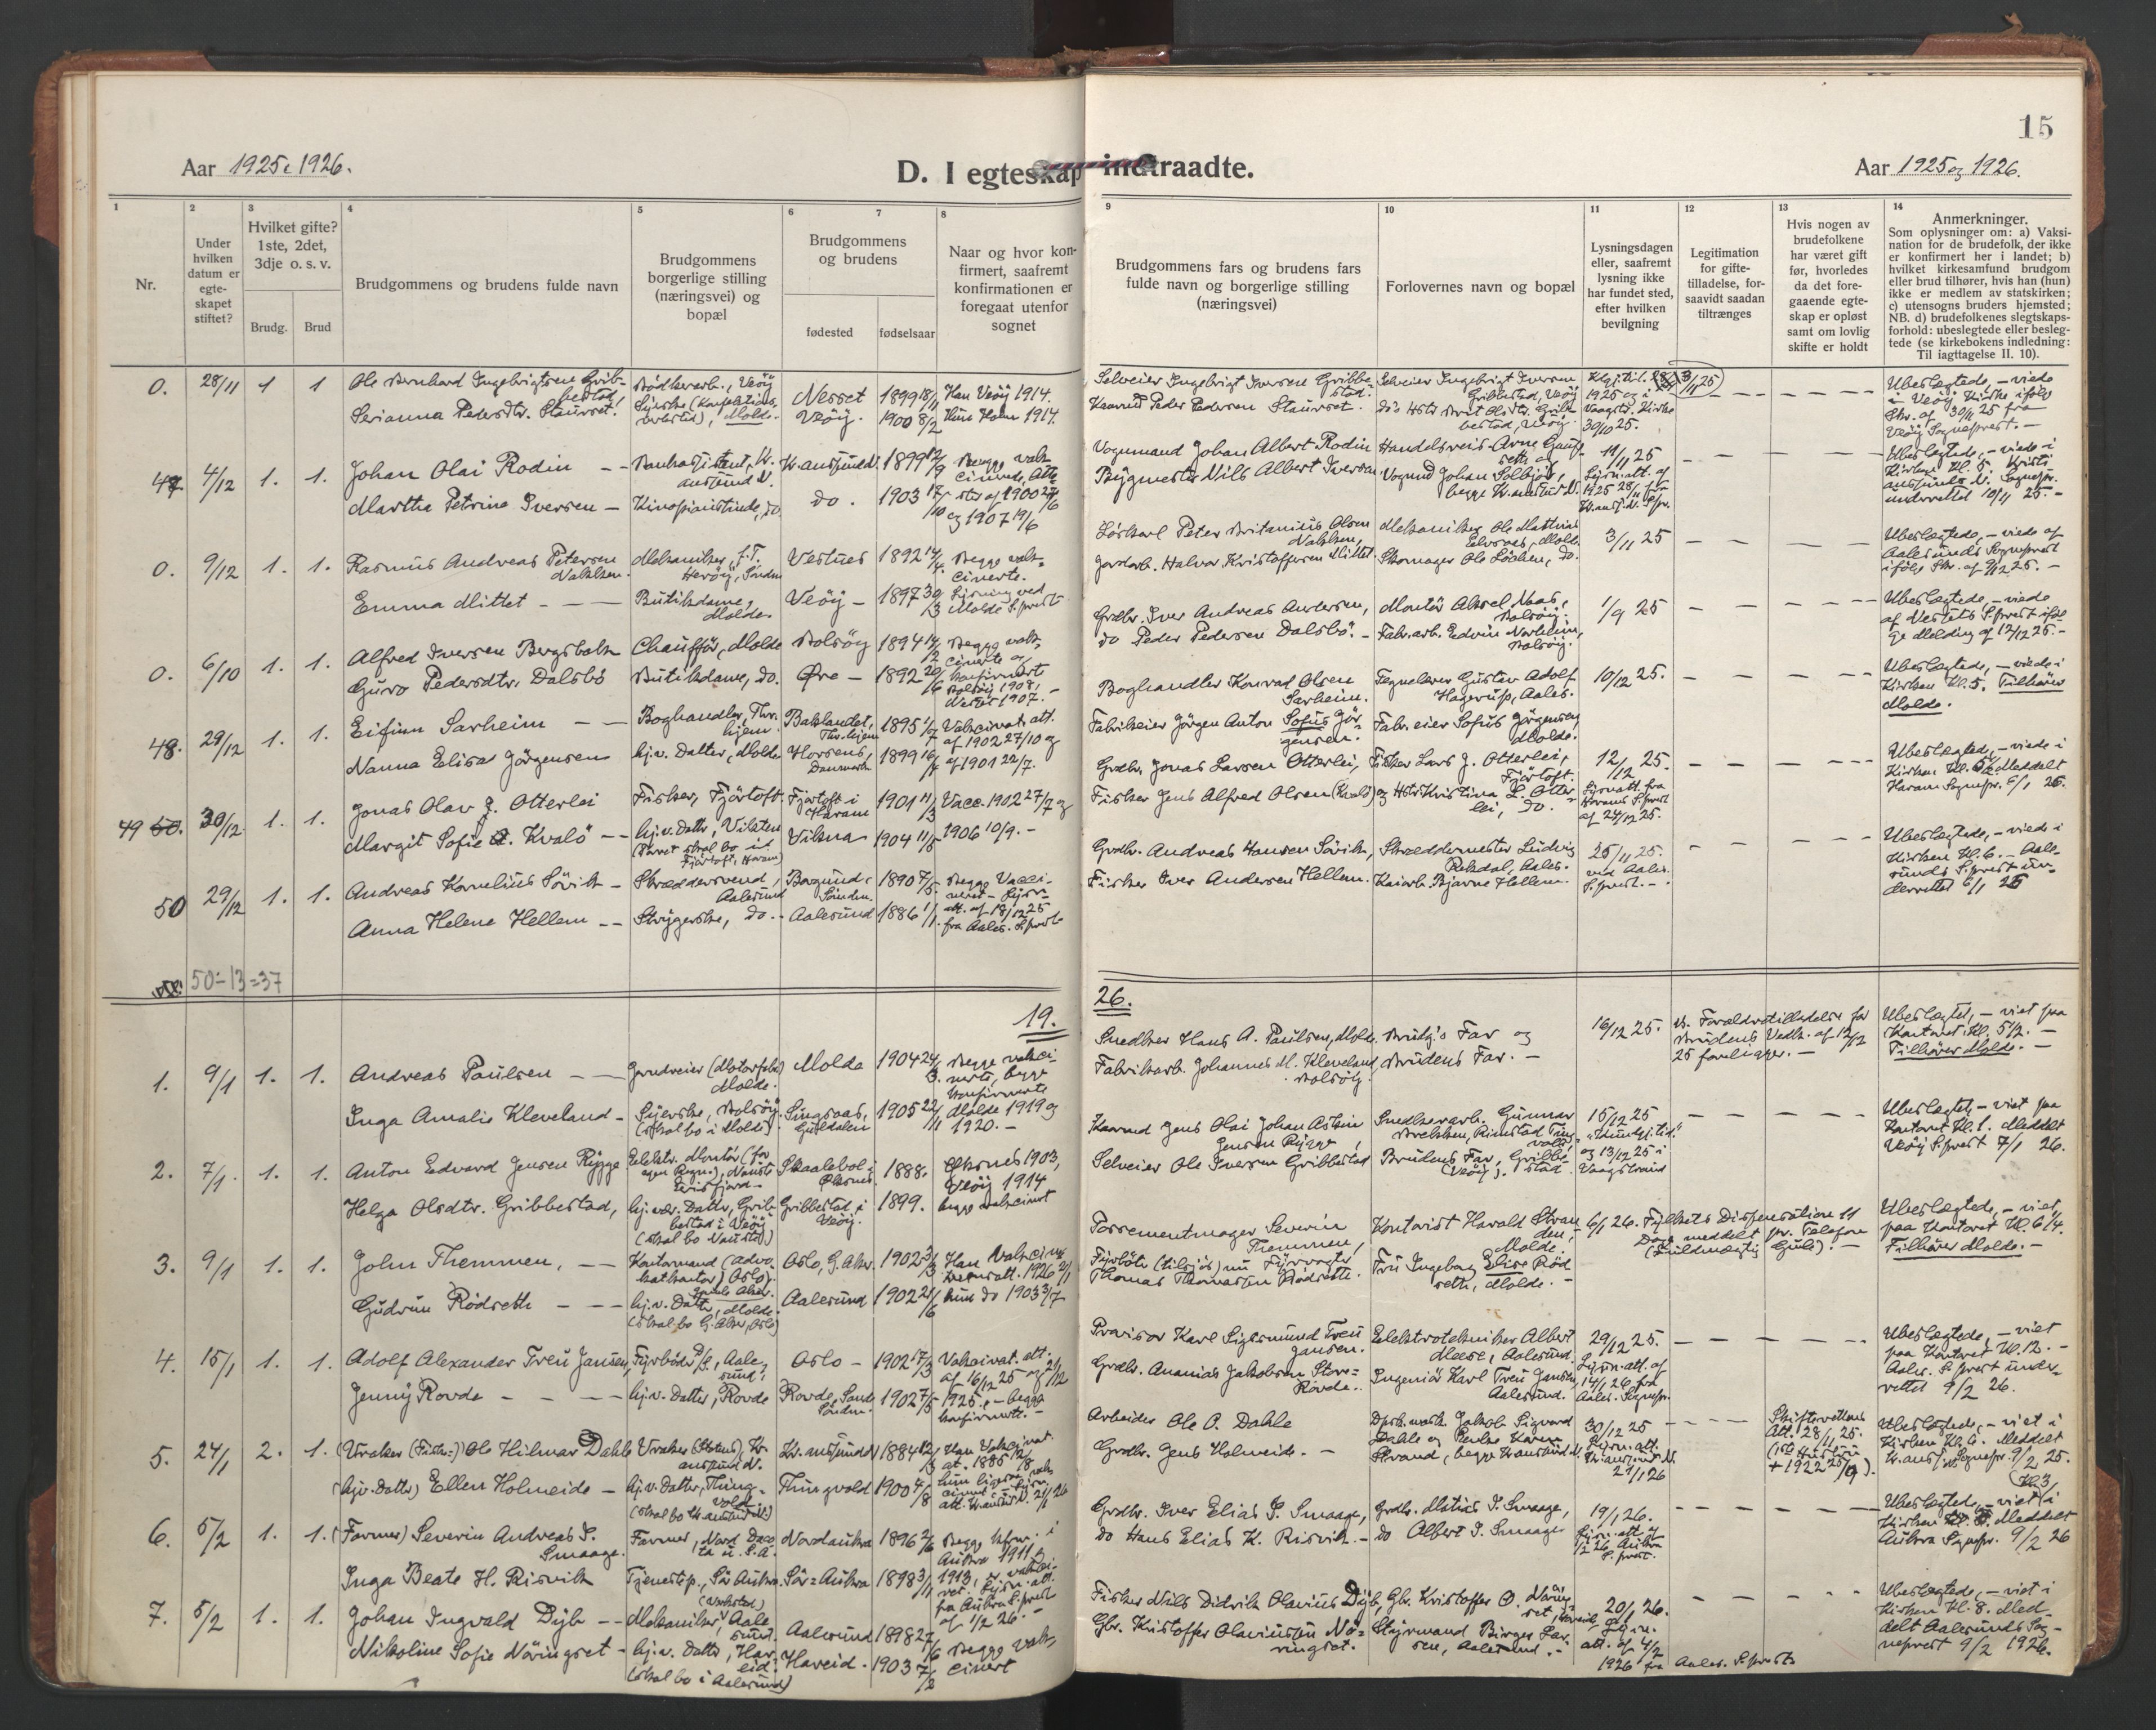 15
Aar 1925 & 1926.
D. I egteskap indtraadte.
Aar 1925 og 1926.
1 2 3 4 5 6 7 8 9 10 11 12 13 14
Nr.
Under
hvilken
datum er
egte-
skapet
stiftet?
Hvilket gifte?
1ste, 2det,
3dje o. s. v.
Brudg. Brud
Brudgommens og brudens fulde navn
Brudgommens
borgerlige stilling
(næringsvei) og
bopæl
Brudgommens
og brudens
fødested fødselsaar
Naar og hvor kon-
firmert, saafremt
konfirmationen er
foregaat utenfor
sognet
Brudgommens fars og brudens fars
fulde navn og borgerlige stilling
(næringsvei)
Forlovernes navn og bopæl
Lysningsdagen
eller, saafremt
lysning ikke
har fundet sted,
efter hvilken
bevilgning
Legitimation
for gifte-
tilladelse, for-
saavidt saadan
tiltrænges
Hvis nogen av
brudefolkene
har været gift
før, hvorledes
da det fore-
gaaende egte-
skap er opløst
samt om lovlig
skifte er holdt
Anmerkninger.
Som oplysninger om: a) Vaksi-
nation for de brudefolk, der ikke
er konfirmert her i landet; b)
hvilket kirkesamfund brudgom
eller brud tilhører, hvis han (hun)
ikke er medlem av statskirken;
c) utensogns bruders hjemsted;
NB. d) brudefolkenes slegtskaps-
forhold: ubeslegtede eller besleg-
tede (se kirkebokens indledning:
Til iagttagelse II. 10).
0. 28/11 1 1
Ole Bernhard Ingebrigtsen Grib-
bestad,
Serianna Pedersdtr. Staurset.
Molde.
Nesset 1899 18/11
Veöy. 1900 8/2
Han Veöy 1914.
Hun Holm 1914.
Selveier Ingebrigt Iversen Gribbe-
stad.
Kaarmd Peder Pedersen Staurset.
Selveier Ingebrigt Iversen
Gribbestad, Veöy
30/10 25.
Ubeslægtede, – viede
i Veöy Kirke ifölge
Skr. af 30/11 25 fra
Veöy Sogneprest. –
47. 4/12 1. 1.
Johan Olai Rodin – –
Martha Petrine Iversen –
Bankassistent, Kr.
ansund N.
Kinopianistinde, do.
Kr.ansund N. 1899 12/9
do. 1903 18/10
Begge vak-
cinerte, Atte-
ster af 1900 27/6
og 1907 19/6
Vognmand Johan Albert Rodin
Bygmester Nils Albert Iversen
Vognmd Johan Solbjör,
begge Kr.ansund N.
11/11 25
Lysn.att. af
1925 28/11 fra
Kr.ansd. N. S.pr.
Ubeslægtede, – viede i
Kirken Kl. 5. Kristi-
ansunds N. Sognepr.
underrettet 10/11 25. –
0. 9/12 1. 1.
Rasmus Andreas Petersen
Nakken.
Emma Mittet – – –
Mekaniker, f.T.
Heröy, Söndm
Butikdame,
Molde.
Vestnes 1892 14/4.
Veöy – 1897 30/3
Begge vak-
cinerte.
Lysning ved
Molde S.prest
Löskarl Peter Britanius Olsen
Nakken,
Jordarb. Halvor Kristoffersen Mittet.
Mekaniker Ole Mathias
Elvsaas, Molde.
Skomager Ole Löchen, do.
3/11 25
Ubeslægtede, – viede af
Aalesunds Sogneprest
ifölge Skr. af 9/12 25. –
0. 6/10 1. 1.
Alfred Iversen Bergsbakk
Guro Pedersdtr. Dalsbö
Chaufför, Molde
Butikdame, do.
Bolsöy 1894 14/12
Öre – 1892 20/6
Begge vak-
cinerte og
konfirmert
Bolsöy 1908,
Nesset 1907. –
Grdbr. Iver Andreas Andersen,
do Peder Pedersen Dalsbö. –
Montör Aksel Naas,
Bolsöy.
Fabr.arb. Edvin Norheim,
Bolsöy.
1/9 25
Ubeslægtede, – viede
af Nessets S.prest iföl-
ge Melding af 12/12 25. –
48. 29/12 1. 1.
Eifinn Sarheim – –
Nanna Elisa Jörgensen
Boghandler, Thr.
hjem
hj.v. Datter, Molde
Baklandet,
Thr.hjem 1895 1/7
Horsens,
Danmark 1899 16/4
Vakcinat. att.
af 1902 27/10 og
af 1901 22/7.
Boghandler Konrad Olsen
Sarheim.
Fabrikeier Jörgen Anton Sofus Jör-
gensen.
Tegnelærer Gustav Adolf
Hagerup, Aales.
Fabr.eier Sofus Jörgensen
Molde.
10/12 25.
Ubeslægtede, – viede i
Kirken Kl. 5. Tilhörer
Molde.
49 50. 30/12. 1. 1.
Jonas Olav J. Otterlei
Margit Sofie A. Kvalö – –
Fisker, Fjörtoft.
hj.v. Datter, Vikten
(Parret skal bo i
Fjörtoft, Haram)
Fjörtoft i
Haram 1901 11/3
Vikna 1904 11/5
Vacc. 1902 27/7 og
1906 10/9. –
Grdbr. Jonas Larsen Otterlei,
Fisker Jens Alfred Olsen (Kvalö)
Fisker Lars J. Otterlei,
Fjörtoft.
og Hstr Kristina L. Otter-
lei, do.
12/12 25.
Lysn.att. fra
Harams S.prest
af 24/12 25.
Ubeslægted, – viede i
Kirken Kl. 5½. Meddelt
Haram Sognepr. 6/1 26.
50 29/12 1. 1.
Andreas Kornelius Sövik –
Anna Helene Hellem – –
Skræddersvend,
Aalesund
Strygerske, do. –
Borgund, 1890 7/5
Söndm.
Aalesund 1886 1/1.
Begge Vacci-
neret – Lysn-
att. af 18/12 25
fra Aales. S.prest
Grdbr. Andreas Hansen Sövik,
Fisker Iver Andersen Hellem.
Skræddermester Ludvig
Rekdal, Aales.
Kaiarb. Bjarne Hellem
25/11 25.
ved Aales.
S.prest. – .
Ubeslægtede, – viede i
Kirken Kl. 6. – Aale-
sunds S.prest un-
derrettet 6/1 26
50÷13=37
19. 26.
1. 9/1 1. 1.
Andreas Paulsen – –
Inga Amalie Kleveland –
Molde.
Syerske, Bolsöy.
(skal bo i Molde).
Molde 1904 24/3.
Singsaas,
Guldalen 1905 22/11
Begge vakci-
nerte, begge
konfirmerte
Molde 1919 og
1920. –
Snedker Hans A. Paulsen, Molde.
Fabrikarb. Johannes M. Kleveland,
Bolsöy.
Brudg's Far og
Brudens Far. –
16/12 25.
Forældretilladelse for
Brudens Vedk. af 12/12
25 foreligger. –
Ubeslægtet, – viet paa
Kontoret Kl. 5½. –
Tilhörer Molde. –
2. 7/1. 1. 1.
Anton Edvard Jensen Rygge
Helga Olsdtr. Gribbestad,
Elektr. Montör (for
egen Regn.), Nauste
Eirisfjord –
hj.vær. Datter, Grib-
bestad i Veöy
(skal bo Nauste)
Skaalebol i
Öksnes 1888.
Gribbestad i
Veöy. 1899.
Öksnes 1903,
Veöy 1914
begge vakcinert
Kaarmd Jens Olai Johan Astein
Jensen Rygge,
Selveier Ole Iversen Gribbestad
Snedkerarb. Gunnar
Brekken, Rimstad Ting-
vold,
Brudens Far, Gribbe-
stad (Veöy).
15/12 25
og 13/12 25 i
Vaagstranda
Ubeslægtet – viet paa
Kontoret Kl. 1. Meddelt
Veöy S.prest 7/1 26.
3. 9/1 1. 1.
John Themmen, – –
Gudrun Rödseth – – –
Kontormand (Advo-
katkontor) Oslo,
hj.v. Datter, Molde.
(skal bo G. Aker, Oslo)
Oslo, G. Aker. 1902 3/3
Aalesund 1902 21/6
Han Vakcine-
rensatt. 1926 2/1
hun do 1903 3/7
Possementmager Severin
Themmen,
Fyrböter (tilsjös) nu Fyrvogter
Thomas Thomassen Rödseth.
Kontorist Harald Stran-
den,
Molde.
Fru Ingeborg Elise Röd-
seth, Molde. –
6/1 26.
Fylkets Dispensation 11
Dage meddelt pr. Telefon
(Fuldmægtig Gule). –
Ubeslægtede, – viet,
paa Kontoret Kl. 6¼.
Tilhörer Molde. –
4. 15/1 1. 1.
Adolf Alexander Treu Jansen,
Jenny Rovde – – – –
Fyrböder, Aale-
sund,
hj.v. Datter, Rovde
Oslo – 1902 17/3
Rovde, Sande
Söndm. 1902 7/5
Vakcinat. att.
af 16/12 25 og 21/12
1925. – begge
konfirmerte. –
Provisor Karl Sigismund Treu
Jansen.
Grdbr. Ananias Jakobsen Stor-
Rovde.
Elektrotekniker Albert
Meese, Aalesund.
Ingeniör Karl Treu Jansen,
Aalesund.
29/12 25.
Lysn.att. af
14/1 26 fra
Aales. Sognepr.
Ubeslægtede, – viet
paa Kontoret Kl. 12. –
Aales. S.prest under-
rettet 9/2 26.
5. 24/1 2. 1.
(Vraker (Fiske-)) Ole Hilmar Dahle
(hj.v. Datter) Ellen Holmeide –
Vraker (Statens), Kr.
ansund N.
hj.v. Datter, Thing-
vold
(skal bo Kr.ansund N.)
Kr.ansund N 1884 12/3
Thingvold 1900 4/8
Han Vakcinat.
att. 1885 12/8
Arbeider Ole O. Dahle
Grdbr. Jens Holmeide. –
Dahle og Pauline Karen
Strand, begge Kr.ansund N.
30/12 25
Lysn.att.
Kr.ansund N.
21/1 26
Skifterettens
Att. 28/11 25.
Ubeslægtede, – viet i
Kirken Kl. 6. Meddelt
Kr.ansd. N. Sognepr. 9/2 25.
6. 5/2 1. 1.
(Farmer) Severin Andreas I.
Smaage.
Inga Beate H. Risvik
Farmer, Nord Daco-
ta U.S.A.
Tjenestep., Sör Aukra
Nordaukra 1896 2/6
Sör-Aukra 1898 3/11
Begge kfrm. i
Aukra 1911 &
1913, er vakci-
net. Lysn.att.
fra Aukra S.prest
af 1/2 26. –
Grdbr. Iver Elias S. Smaage,
do Hans Elias K. Risvik. –
Grdbr. Matias I. Smaage,
do Albert I. Smaage
19/1 26.
Lysn.att. af
1/2 26 Aukra
S.prest.
Kl 3,
Ubeslægtede, – viet i
Kirken Kl. 6. Meddelt
Aukra Sognepr. 9/2 26
7. 5/2 1. 1.
Johan Ingvald Dyb – –
Nikoline Sofie Näringset –
(Verksted)
Mekaniker, Aale-
sund.
hj.v. Datter, Har-
eid.
(skal bo i Aalesund)
Aalesund 1898 27/6
Hareid. 1903 7/2
Begge vak-
cinert
Fisker Nils Didrik Olavius Dyb,
Gbr. Kristoffer Olaviussen Nä-
ringset.
Gbr. Kristoffer O. Näring-
set, Hareid, og
Styrmand Birger Lar-
sen, Aalesund. –
20/1 26.
Lysn.
att. af 4/2
1926 fra Aales. S.prest
Ubeslægtede, – viet i
Kirken Kl. 8. Med-
delt Aalesunds Sog-
neprest 9/2 1926.